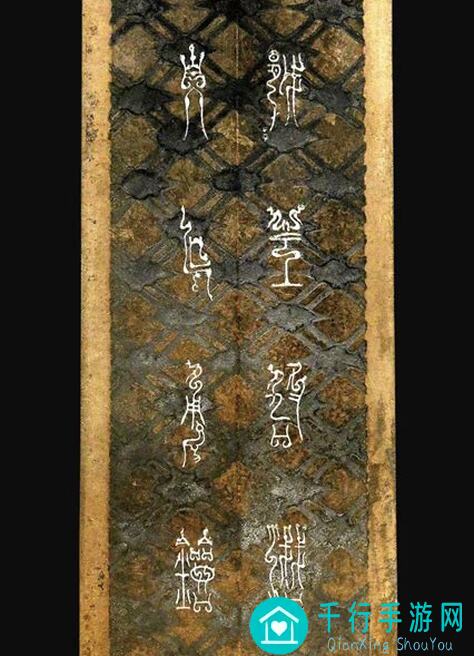 越王鳩淺
自乍用鐱
千行手游网
QianXing ShouYou